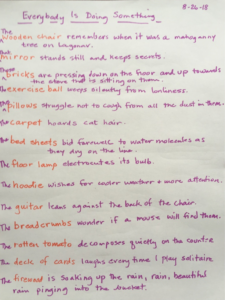 Everybody Is Doing Something
8-26-18
The wooden chair remembers when it was a mahogany
tree on
The mirror stands still and keeps secrets.
The bricks are pressing down on the floor and up towards
the stove that is sitting on them.
The exercise ball weeps silently from loneliness.
The pillows struggle not to cough from all the dust in them.
The carpet hoards cat hair.
The bed sheets bid farewell to water molecules as
they dry on the line.
The floor lamp electrocutes its bulb.
The hoodie wished for cooler weather + more attention.
The guitar leans against the back of the chair.
The breadcrumbs wonder if a mouse will find them.
The rotten tomato decomposes quietly on the counter
The deck of cards laughs every time I play solitaire
The firewood is soaking up the rain, rain, beautiful
rain pinging into the bucket.